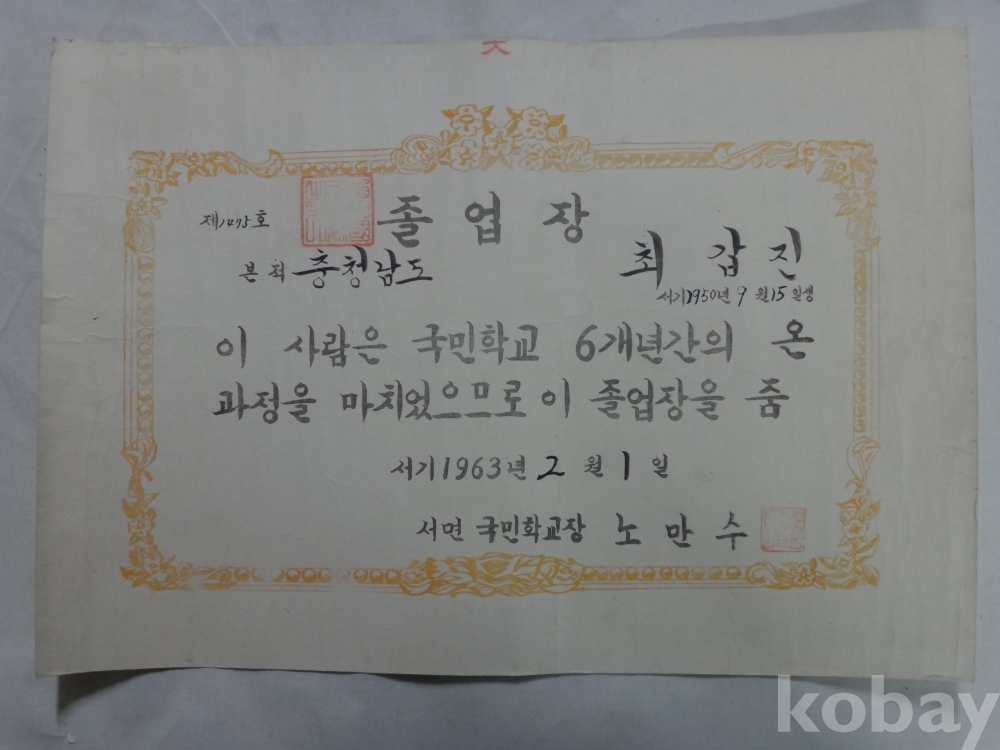 제1475호
졸업장
본적 충청남도
최갑진
서기1950년 9월 15일생
이 사람은 국민학교 6개년간의 온
과정을 마치었으므로 이 졸업장을 줌
서기1963년 2월 1일
서면 국민학교장 노만수
kobay